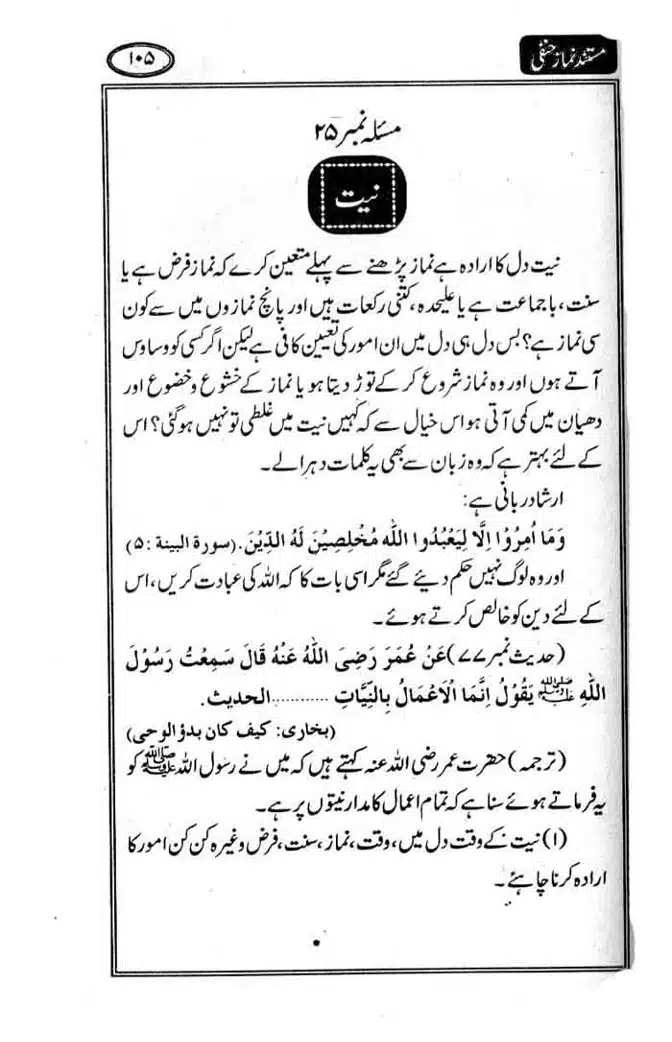 مستند نماز حنفی
۱۰۵
مسئلہ نمبر ۲۵
نیت
نیت دل کا ارادہ ہے نماز پڑھنے سے پہلے متعین کرے کہ نماز فرض ہے یا
سنت، باجماعت ہے یا علیحدہ، کتنی رکعات ہیں اور پانچ نمازوں میں سے کون
سی نماز ہے؟ بس دل ہی دل میں ان امور کی تعیین کافی ہے لیکن اگر کسی کو وساوس
آتے ہوں اور وہ نماز شروع کر کے توڑ دیتا ہو یا نماز کے خشوع و خضوع اور
دھیان میں کمی آتی ہو اس خیال سے کہ کہیں نیت میں غلطی تو نہیں ہوگئی؟ اس
کے لئے بہتر ہے کہ وہ زبان سے بھی یہ کلمات دہرا لے۔
ارشاد ربانی ہے:
وَمَا اُمِرُوْا اِلَّا لِيَعْبُدُوا اللّٰهَ مُخْلِصِيْنَ لَهُ الدِّيْنَ. (سورة البينة :۵)
اور وہ لوگ نہیں حکم دیئے گئے مگر اسی بات کا کہ اللہ کی عبادت کریں، اس
کے لئے دین کو خالص کرتے ہوئے۔
(حدیث نمبر ۷۷) عَنْ عُمَرَ رَضِىَ اللّٰهُ عَنْهُ قَالَ سَمِعْتُ رَسُوْلَ
اللّٰهِ ﷺ يَقُوْلُ اِنَّمَا الْاَعْمَالُ بِالنِّيَّاتِ ............الحديث.
(بخاری: کیف کان بدؤ الوحی)
(ترجمہ) حضرت عمر رضی اللہ عنہ کہتے ہیں کہ میں نے رسول اللہ ﷺ کو
یہ فرماتے ہوئے سنا ہے کہ تمام اعمال کا مدار نیتوں پر ہے۔
(۱) نیت کے وقت دل میں، وقت، نماز، سنت، فرض وغیرہ کن کن امور کا
ارادہ کرنا چاہئے۔